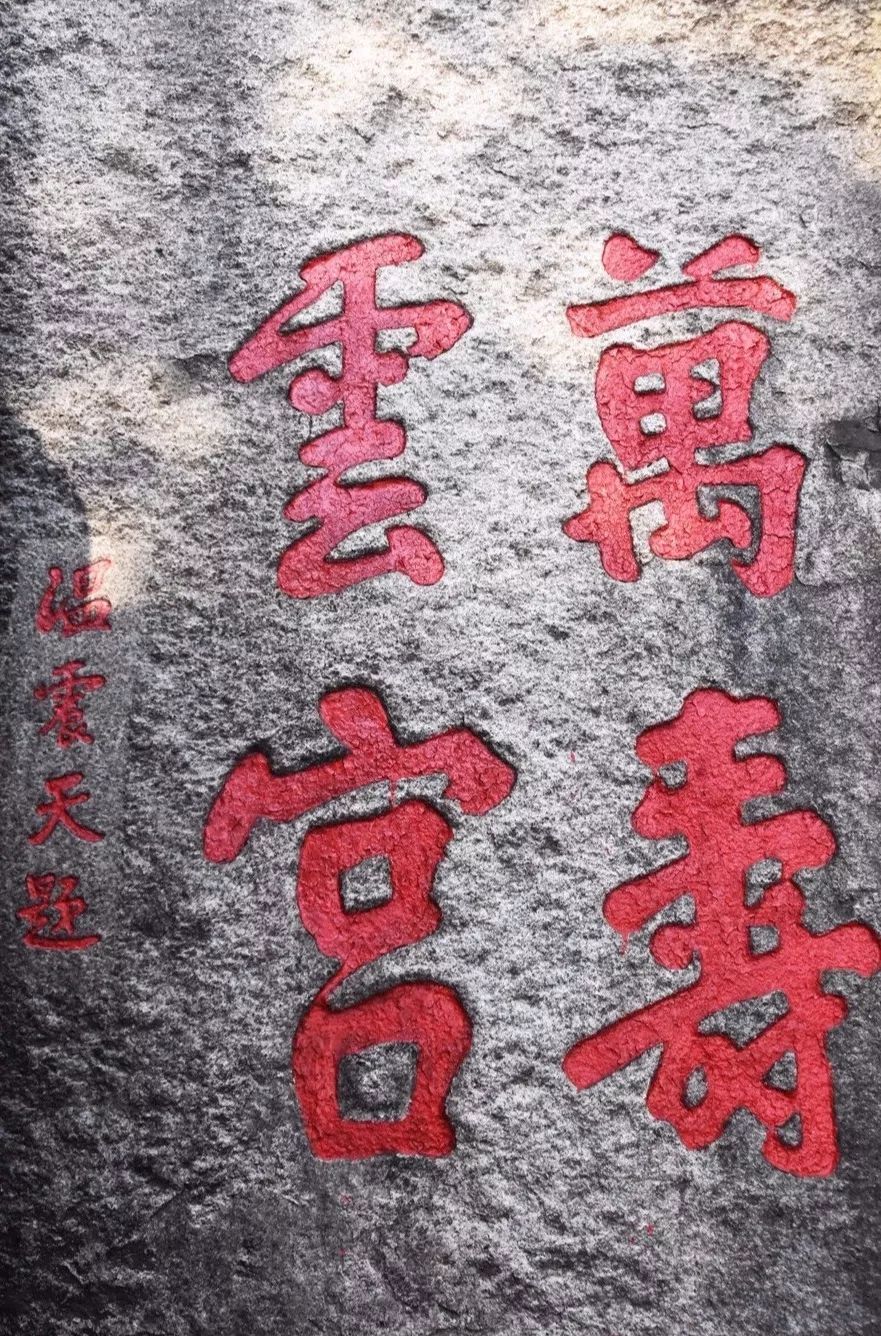 萬壽
雲宮
温震天題